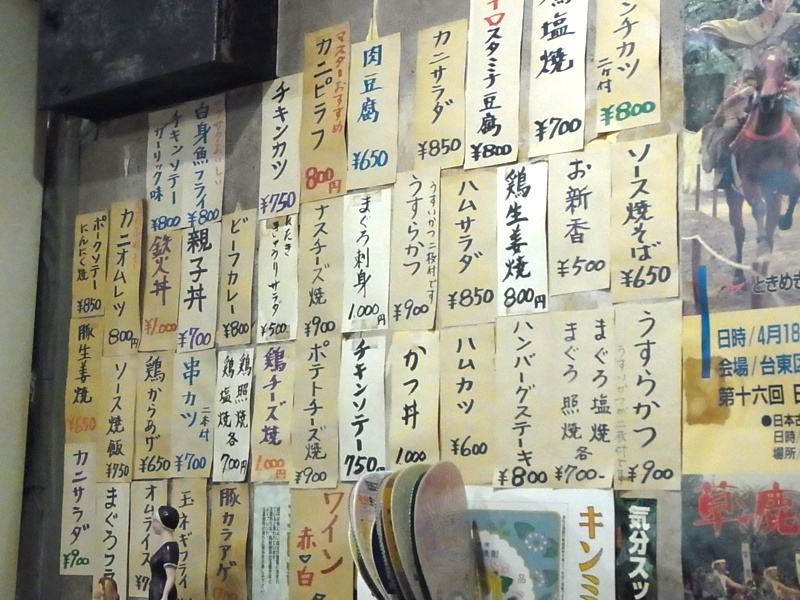 ンチカツ
二ケ付
¥800
塩焼
¥700
スタミナ豆腐
¥800
カニサラダ
¥850
肉豆腐
¥650
マスターおすすめ
カニピラフ
800円
チキンカツ
¥750
白身魚フライ
¥800
チキンソテー
ガーリック味
¥800
ソース焼そば
¥650
お新香
¥500
鶏生姜焼
800円
ハムサラダ
¥850
うすいかつ二枚付です
うすらかつ
¥900
まぐろ刺身
1,000円
ナスチーズ焼
¥900
たたき
きゅうりサラダ
¥500
ビーフカレー
¥800
親子丼
¥700
鉄火丼
¥1,000
カニオムレツ
800円
ポークソテー
にんにく焼
¥850
うすらかつ
うすいかつが二枚付です
¥900
まぐろ塩焼
まぐろ照焼
各
¥700-
ハンバーグステーキ
¥800
ハムカツ
¥600
かつ丼
1,000
チキンソテー
750円
ポテトチーズ焼
¥900
鶏チーズ焼
1,000円
鶏照焼
鶏塩焼
各
700円
串カツ
二本付
¥700
鶏からあげ
¥650
ソース焼飯
¥750
豚生姜焼
¥650
カニサラダ
¥900
まぐろフラ
オムライス
¥7
玉ネギフライ
豚カラアゲ
ワイン
赤♡白
キンミ
気分スッ
ときめき
日時/4月18
会場/台東区
第十六回
●日本古
日時/
場所/
草鹿